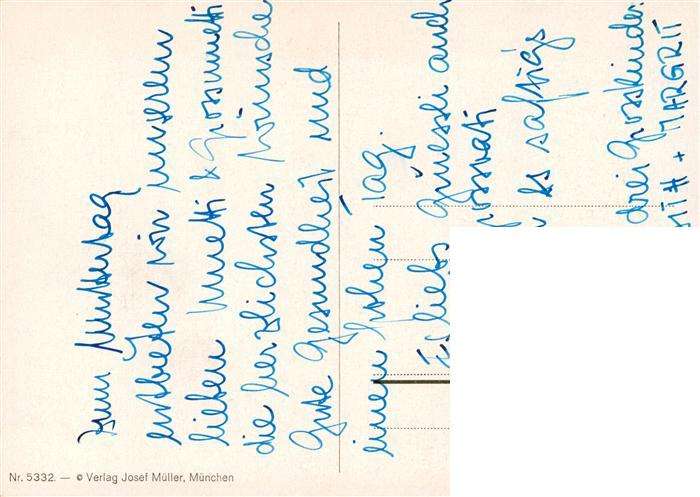 zum Muttertag
entbieten wir unserem
lieben Muetti & Grossmuetti
die herzlichsten Wünsche
Gute Gesundheit und
einen frohen Tag.
Es liebs Gruessli auch
Grossvati
es saftigs
drei Grosskinder
+ MARGRIT
Nr. 5332. — © Verlag Josef Müller, München